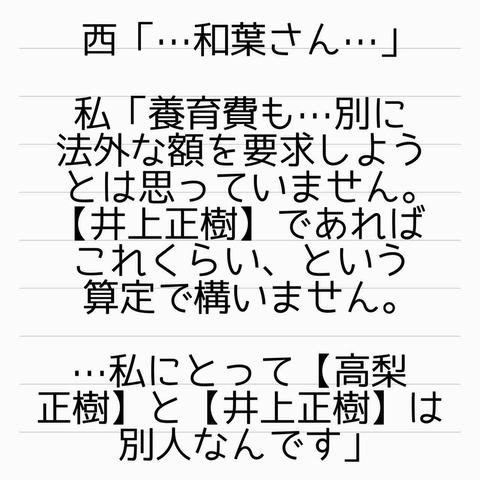 西「…和葉さん…」
私「養育費も…別に
法外な額を要求しよう
とは思っていません。
【井上正樹】であれば
これくらい、という
算定で構いません。
…私にとって【高梨
正樹】と【井上正樹】は
別人なんです」